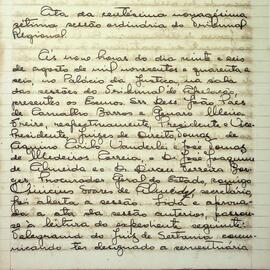 Ata da centésima nonagésima
sétima sessão ordinária do Tribunal
Regional.
Às nove horas do dia vinte e seis
de agosto de mil novecentos e quarenta e
seis, no Palácio da Justiça, na sala
das sessões do Tribunal de Apelação,
presentes os Exmos. Srs. Des. João Paes
de Carvalho Barros e Genaro
Freire, respectivamente, Presidente e Vice
Presidente, Juizes de Direito, Tomaz de
Aquino Cirilo Wanderlei, José Tomaz
de Medeiros Correia, e Dr. José Joaquim
de Almeida e o Dr. Dirceu Ferreira
Procurador do Estado, comigo
Soares de Almeida, secretário
foi aberta a sessão. Lida e aprova-
da a ata da sessão anterior, passou-
se à leitura do expediente seguinte:
Telegrama do Juiz de Sertânia comu-
nicando ter designado a serventuária